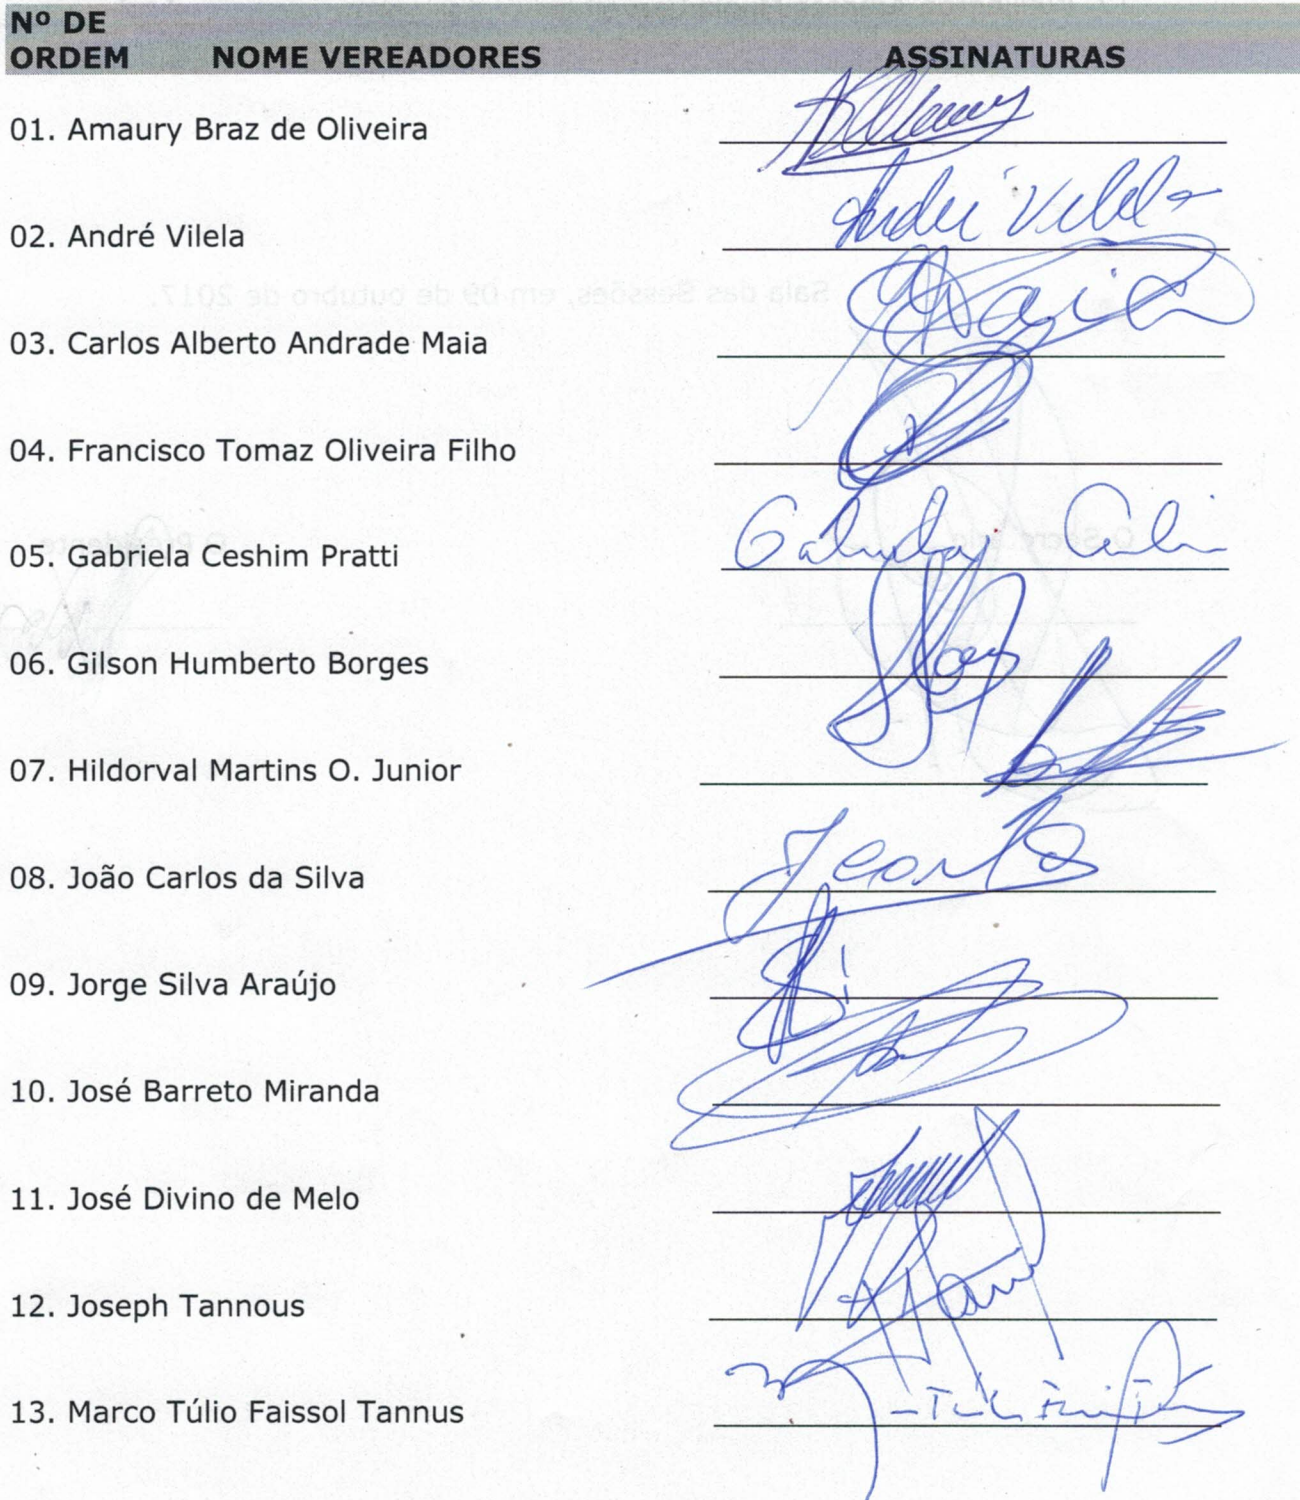 Nº DE
ORDEM NOME VEREADORES ASSINATURAS
01. Amaury Braz de Oliveira
02. André Vilela André Vilela
03. Carlos Alberto Andrade Maia Maia
04. Francisco Tomaz Oliveira Filho
05. Gabriela Ceshim Pratti
06. Gilson Humberto Borges
07. Hildorval Martins O. Junior
08. João Carlos da Silva
09. Jorge Silva Araújo
10. José Barreto Miranda
11. José Divino de Melo
12. Joseph Tannous
13. Marco Túlio Faissol Tannus
Sala das Sessões, em 09 de outubro de 2017.
O Secretário O Presidente